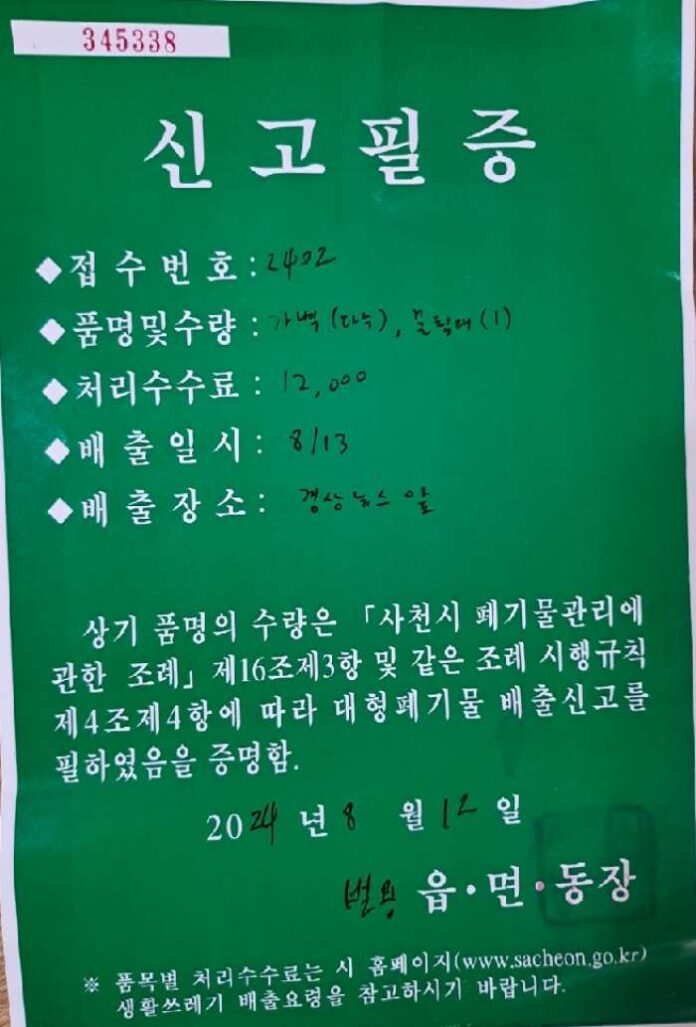 345338
신고필증
◆접수번호: 2402
◆품명및수량: 가벽(다수), (1)
◆처리수수료: 12,000
◆배출일시: 8/13
◆배출장소: 경상뉴스 앞
상기 품명의 수량은 「사천시 폐기물관리에
관한 조례」 제16조제3항 및 같은 조례 시행규칙
제4조제4항에 따라 대형폐기물 배출신고를
필하였음을 증명함.
2024년 8월 12일
벌용 읍·면·동장
※ 품목별 처리수수료는 시 홈페이지(www.sacheon.go.kr)
생활쓰레기 배출요령을 참고하시기 바랍니다.